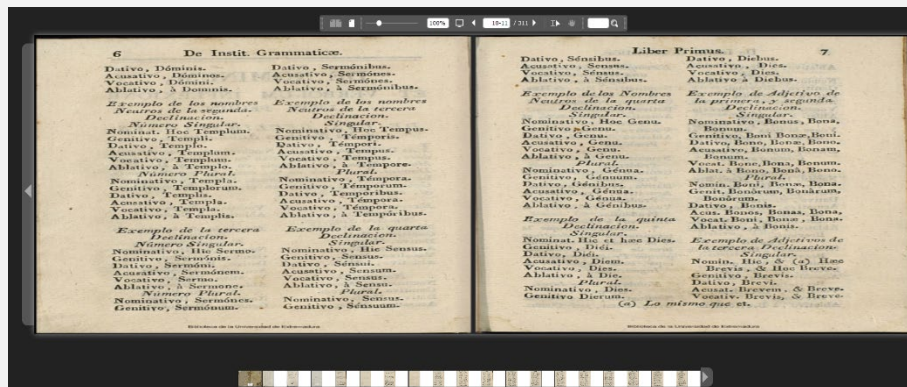 100%
10-11 / 311
6 De Instit. Grammaticæ.
Dativo, Dóminis.
Acusativo, Dóminos.
Vocativo, Dómini.
Ablativo, à Dominis.
Exemplo de los nombres
Neutros de la segunda
Declinacion.
Número Singular.
Nominat. Hoc Templum.
Genitivo, Templi.
Dativo, Templo.
Acusativo, Templum.
Vocativo, Templum.
Ablativo, à Templo.
Número Plural.
Nominativo, Templa.
Genitivo, Templorum.
Dativo, Templis.
Acusativo, Templa.
Vocativo, Templa.
Ablativo, à Templis.
Exemplo de la tercera
Declinacion.
Número Singular.
Nominativo, Hic Sermo.
Genitivo, Sermónis.
Dativo, Sermóni.
Acusativo, Sermónem.
Vocativo, Sermo.
Ablativo, à Sermone.
Número Plural.
Nominativo, Sermónes.
Genitivo, Sermónum.
Dativo, Sermónibus.
Acusativo, Sermónes.
Vocativo, Sermónes.
Ablativo, à Sermónibus.
Exemplo de los nombres
Neutros de la tercera
Declinacion.
Singular.
Nominativo, Hoc Tempus.
Genitivo, Témporis.
Dativo, Témpori.
Acusativo, Tempus.
Vocativo, Tempus.
Ablativo, à Tempore.
Plural.
Nominativo, Témpora.
Genitivo, Témporum.
Dativo, Tempóribus.
Acusativo, Témpora.
Vocativo, Témpora.
Ablativo, à Tempóribus.
Exemplo de la quarta
Declinacion.
Singular.
Nominativo, Hic Sensus.
Genitivo, Sensus.
Dativo, Sénsui.
Acusativo, Sensum.
Vocativo, Sensus.
Ablativo, à Sensu.
Plural.
Nominativo, Sensus.
Genitivo, Sénsuum.
Biblioteca de la Universidad de Extremadura
Liber Primus. 7
Dativo, Sénsibus.
Acusativo, Sensus.
Vocativo, Sénsus.
Ablativo, à Sénsibus.
Exemplo de los Nombres
Neutros de la quarta
Declinacion.
Singular.
Nominativo, Hoc Genu.
Genitivo, Genu.
Dativo, Genu.
Acusativo, Genu.
Vocativo, Genu.
Ablativo, à Genu.
Plural.
Nominativo, Génua.
Genitivo, Génuum.
Dativo, Génibus.
Acusativo, Génua.
Vocativo, Génua.
Ablativo, à Génibus.
Exemplo de la quinta
Declinacion.
Singular.
Nominat. Hic et hæc Dies.
Genitivo, Diéi.
Dativo, Diéi.
Acusativo, Diem.
Vocativo, Dies.
Ablativo, à Die.
Plural.
Nominativo, Dies.
Genitivo Dierum.
Dativo, Diebus.
Acusativo, Dies.
Vocativo, Dies.
Ablativo à Diebus.
Exemplo de Adjetivo de
la primera, y segunda
Declinacion.
Singular.
Nominativo, Bonus, Bona,
Bonum.
Genitivo, Boni Bonæ, Boni.
Dativo, Bono, Bonæ, Bono.
Acusativo, Bonum, Bonam,
Bonum.
Vocat. Bone, Bona, Bonum.
Ablat. à Bono, Bonâ, Bono.
Plural.
Nomin. Boni, Bonæ, Bona.
Genit. Bonórum, Bonárum,
Bonórum.
Dativo, Bonis.
Acus. Bonos, Bonas, Bona,
Vocat. Boni, Bonæ, Bona.
Ablativo, à Bonis.
Exemplo de Adjetivos de
la tercera Declinacion.
Singular.
Nomin. Hic, & (a) Hæc
Brevis, & Hoc Breve.
Genitivo, Brevis.
Dativo, Brevi.
Acusat. Brevem, & Breve.
Vocativ. Brevis, & Breve.
(a) Lo mismo que et.
Biblioteca de la Universidad de Extremadura